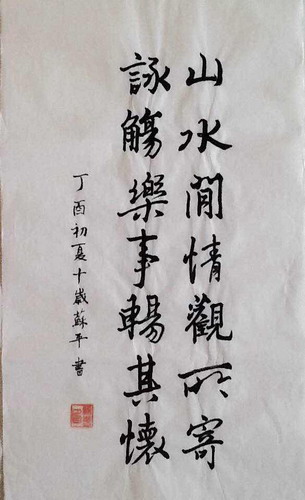 山水閒情觀所寄
詠觴樂事暢其懷
丁酉初夏十歲蘇平書